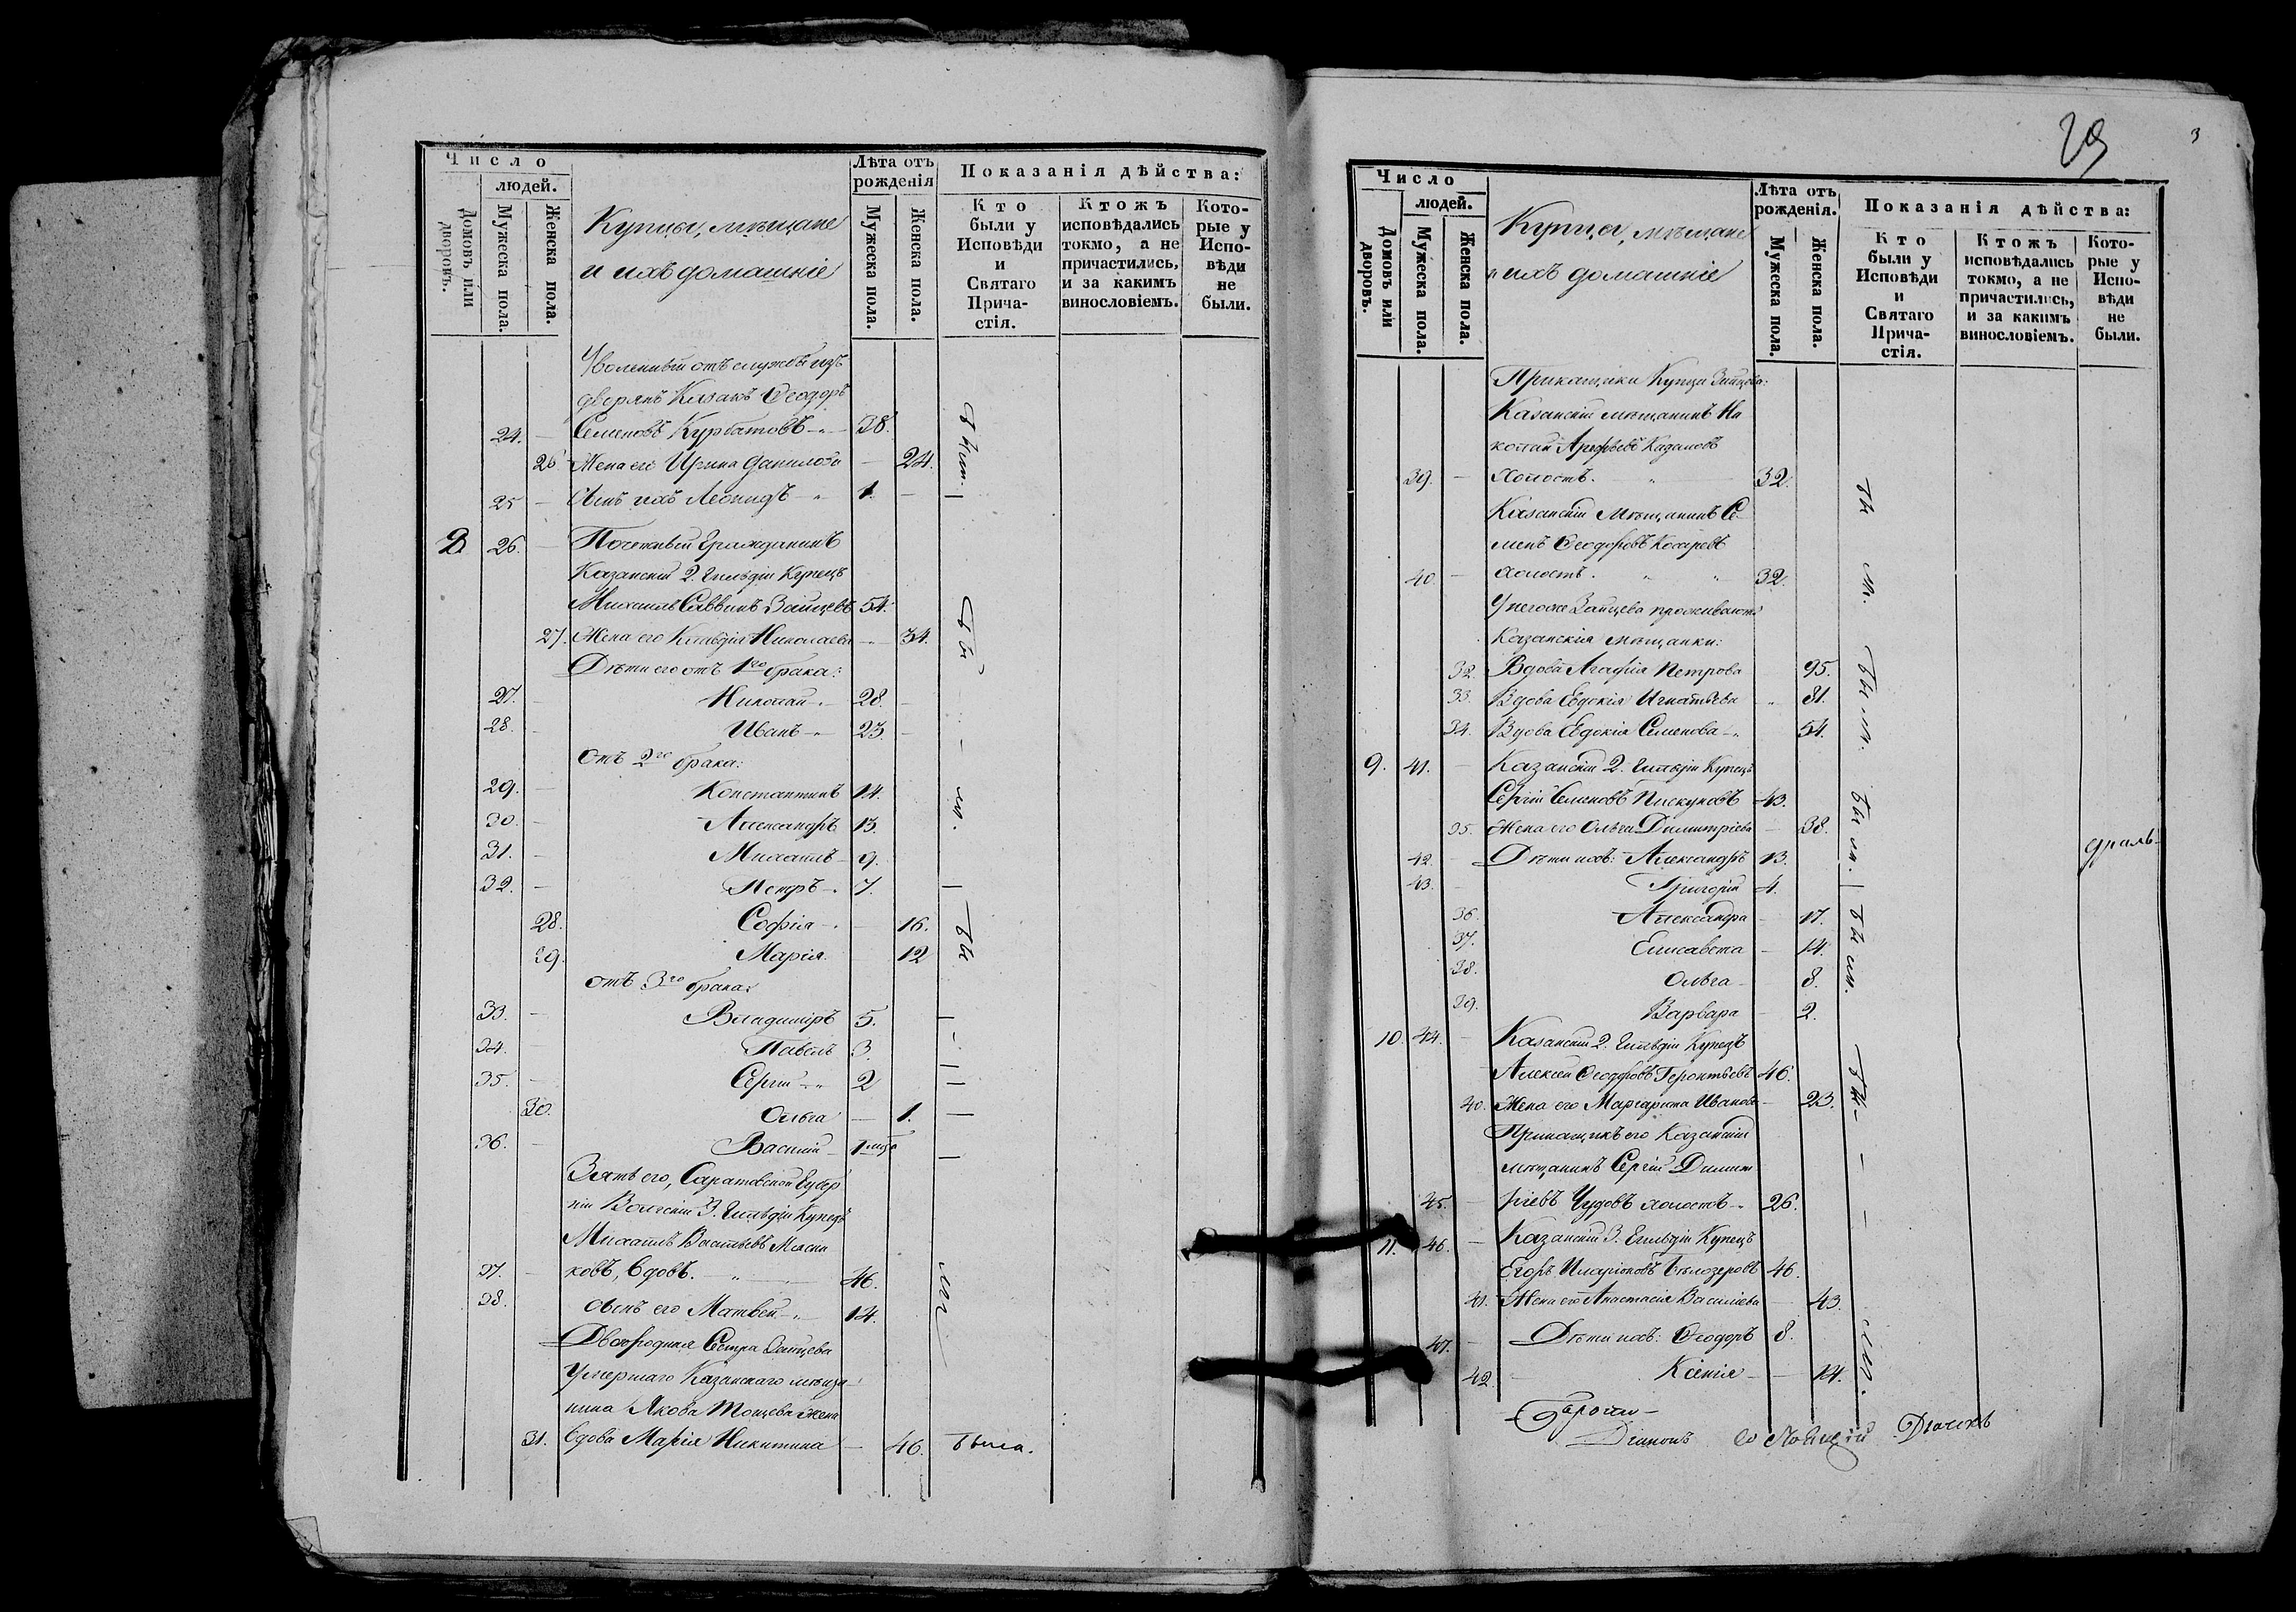 Число
людей.
Домовъ или дворовъ.
Мужеска пола.
Женска пола.
Купцы, мѣщане
и ихъ домашніе
Лѣта отъ рожденія
Мужеска пола.
Женска пола.
Показанія дѣйства:
Кто были у Исповѣди и Святаго Прича-стія.
Ктожъ исповѣдались токмо, а не причастились, и за какимъ винословіемъ.
Кото-рые у Испо-вѣди не были.
Уволенный отъ службы изъ
дворянъ Казакъ Ѳеодоръ
24. — Семеновъ Курбатовъ — 38.
26. Жена его Ирина Данилова — 24.
25 — Сынъ ихъ Леонидъ — 1. —
8 26. — Почетный Гражданинъ
Казанскій 2. Гильдіи Купецъ
Михаилъ Саввинъ Зайцевъ 54.
27. Жена его Клавдія Николаева — 34.
Дѣти его отъ 1го брака:
27. — Николай — 28. —
28. — Иванъ — 23. —
Отъ 2го брака:
29. — Константинъ 14.
30. — Александръ 13.
31. — Михаилъ — 9.
32. — Петръ — 7.
28. Софія — — 16.
29. Марія. 12
отъ 3го брака:
33. — Владиміръ 5.
34. — Павелъ 3.
35. — Сергій — 2
30. Ольга — 1.
36. — Василій — 1 мѣс
Зять его, Саратовской Губер
ніи Волгскій 3. Гильдіи Купецъ
Михаилъ Васильевъ Мясни
37. — ковъ, вдовъ. — 46.
38. Сынъ его Матвей — 14.
Двоюродная Сестра Зайцева
Умершаго Казанскаго мѣща-
нина Якова Тощева жена
31. вдова Марія Никитина — 46. была.
29
3
Число
людей.
Домовъ или дворовъ.
Мужеска пола.
Женска пола.
Купцы, мѣщане
и ихъ домашніе
Лѣта отъ рожденія.
Мужеска пола.
Женска пола.
Показанія дѣйства:
Кто были у Исповѣди и Святаго Прича-стія.
Ктожъ исповѣдались токмо, а не причастились, и за какимъ винословіемъ.
Кото-рые у Испо-вѣди не были.
Прикащики Купца Зайцева:
Казанскій мѣщанинъ Ни
колай Арефьевъ Казаковъ
39. — Холостъ. 32.
Казанскій Мѣщанинъ Се-
менъ Ѳеодоровъ Косаревъ
40. — холостъ. 32.
У негоже Зайцева проживаютъ
Казанскія мѣщанки:
32. Вдова Агафія Петрова 95.
33. Вдова Евдокія Игнатьева 81.
34. Вдова Евдокія Семенова — 54.
9. 41. — Казанскій 2. Гильдіи Купецъ
Сергій Семеновъ Пискуновъ 43.
35. Жена его Ольга Димитріева — 38.
42. — Дѣти ихъ: Александръ 13.
43. — Григорій 4.
36. Александра — 17.
37. Елисавета — 14.
38. Ольга — 8.
39. Варвара — 2.
10. 44. — Казанскій 2. Гильдіи Купецъ
Алексѣй Ѳеодоровъ Геронтьевъ 46.
40. Жена его Маргарита Иванова — 23.
Прикащикъ его Казанскій
мѣщанинъ Сергій Димит
45. — ріевъ Чудовъ холостъ — 26.
11. 46. — Казанскій 3. Гильдіи Купецъ
Егоръ Иларіоновъ Бѣлозеровъ 46.
41. Жена его Анастасія Василіева — 43.
47. — Дѣти ихъ: Ѳеодоръ 8.
42 Ксенія — — 14.
Діаконъ